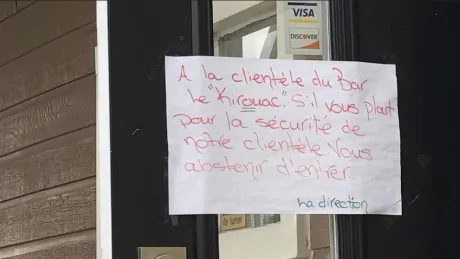 VISA
DISCOVER
A la clientèle du Bar
Le "Kirouac". S'il vous plait
pour la sécurité de
notre clientèle vous
abstenir d'entrer
La direction